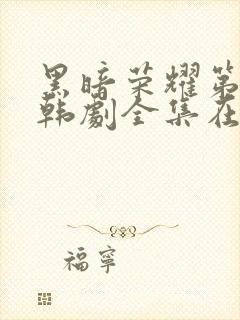 黑暗荣耀第
韩剧全集在
福寧